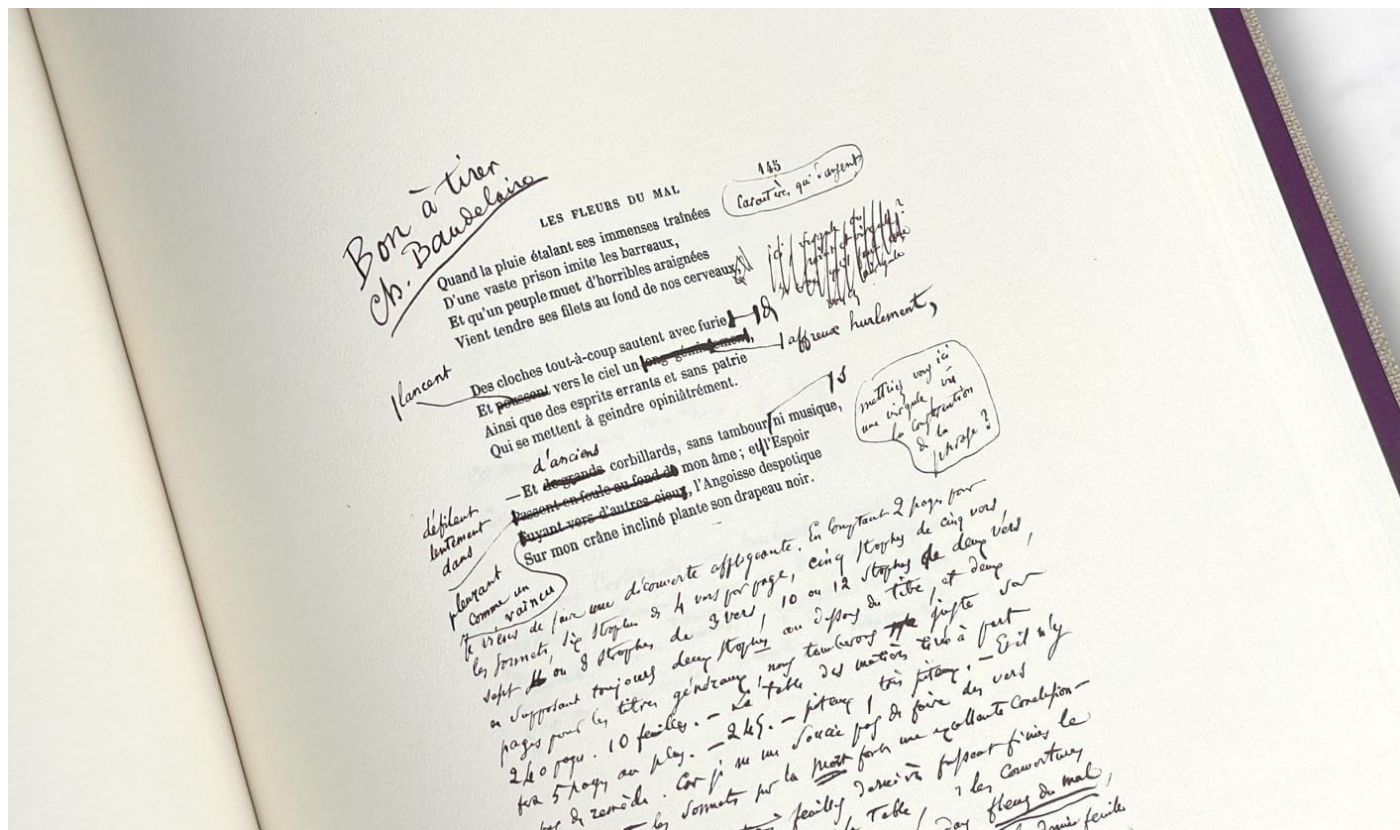 Bon à tirer
Ch. Baudelaire
145
LES FLEURS DU MAL
Caractère, qui
Quand la pluie étalant ses immenses traînées
D'une vaste prison imite les barreaux,
Et qu'un peuple muet d'horribles araignées
Vient tendre ses filets au fond de nos cerveaux,
Des cloches tout-à-coup sautent avec furie
plancent
Et poussent vers le ciel un long gémissement,
affreux hurlement,
Ainsi que des esprits errants et sans patrie
Qui se mettent à geindre opiniâtrément.
d'anciens
—Et de grands corbillards, sans tambour ni musique,
mettriez vous ici
une virgule vu
la construction
de la
phrase ?
Passent en foule au fond de mon âme ; et l'Espoir
défilent
lentement
dans
Fuyant vers d'autres cieux, l'Angoisse despotique
pleurant
comme un
vaincu
Sur mon crâne incliné plante son drapeau noir.
Je viens de faire une découverte affligeante. En comptant 2 pages pour
les sonnets, six strophes de 4 vers par page, cinq strophes de cinq vers,
sept ou 8 strophes de 3 vers, 10 ou 12 strophes de deux vers,
en supposant toujours deux strophes au dessous du titre, et deux
pages pour les titres généraux, nous tomberons juste sur
240 pages. 10 feuilles. — La table des matières tirée à part
fera 5 pages au plus. — 245. — piteux, très piteux. — Et il n'y
pas de remède. Car je ne me soucie pas de faire des vers
les sonnets sur la mort font une excellente conclusion —
feuilles dernières fussent finies le
Table, les couvertures
fleurs du mal,
feuille